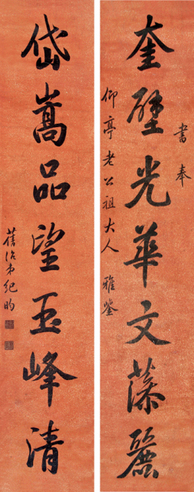 書奉
奎璧光華文藻麗
仰亭老公祖大人 雅鑒
岱嵩品望玉峰清
舊治弟紀昀